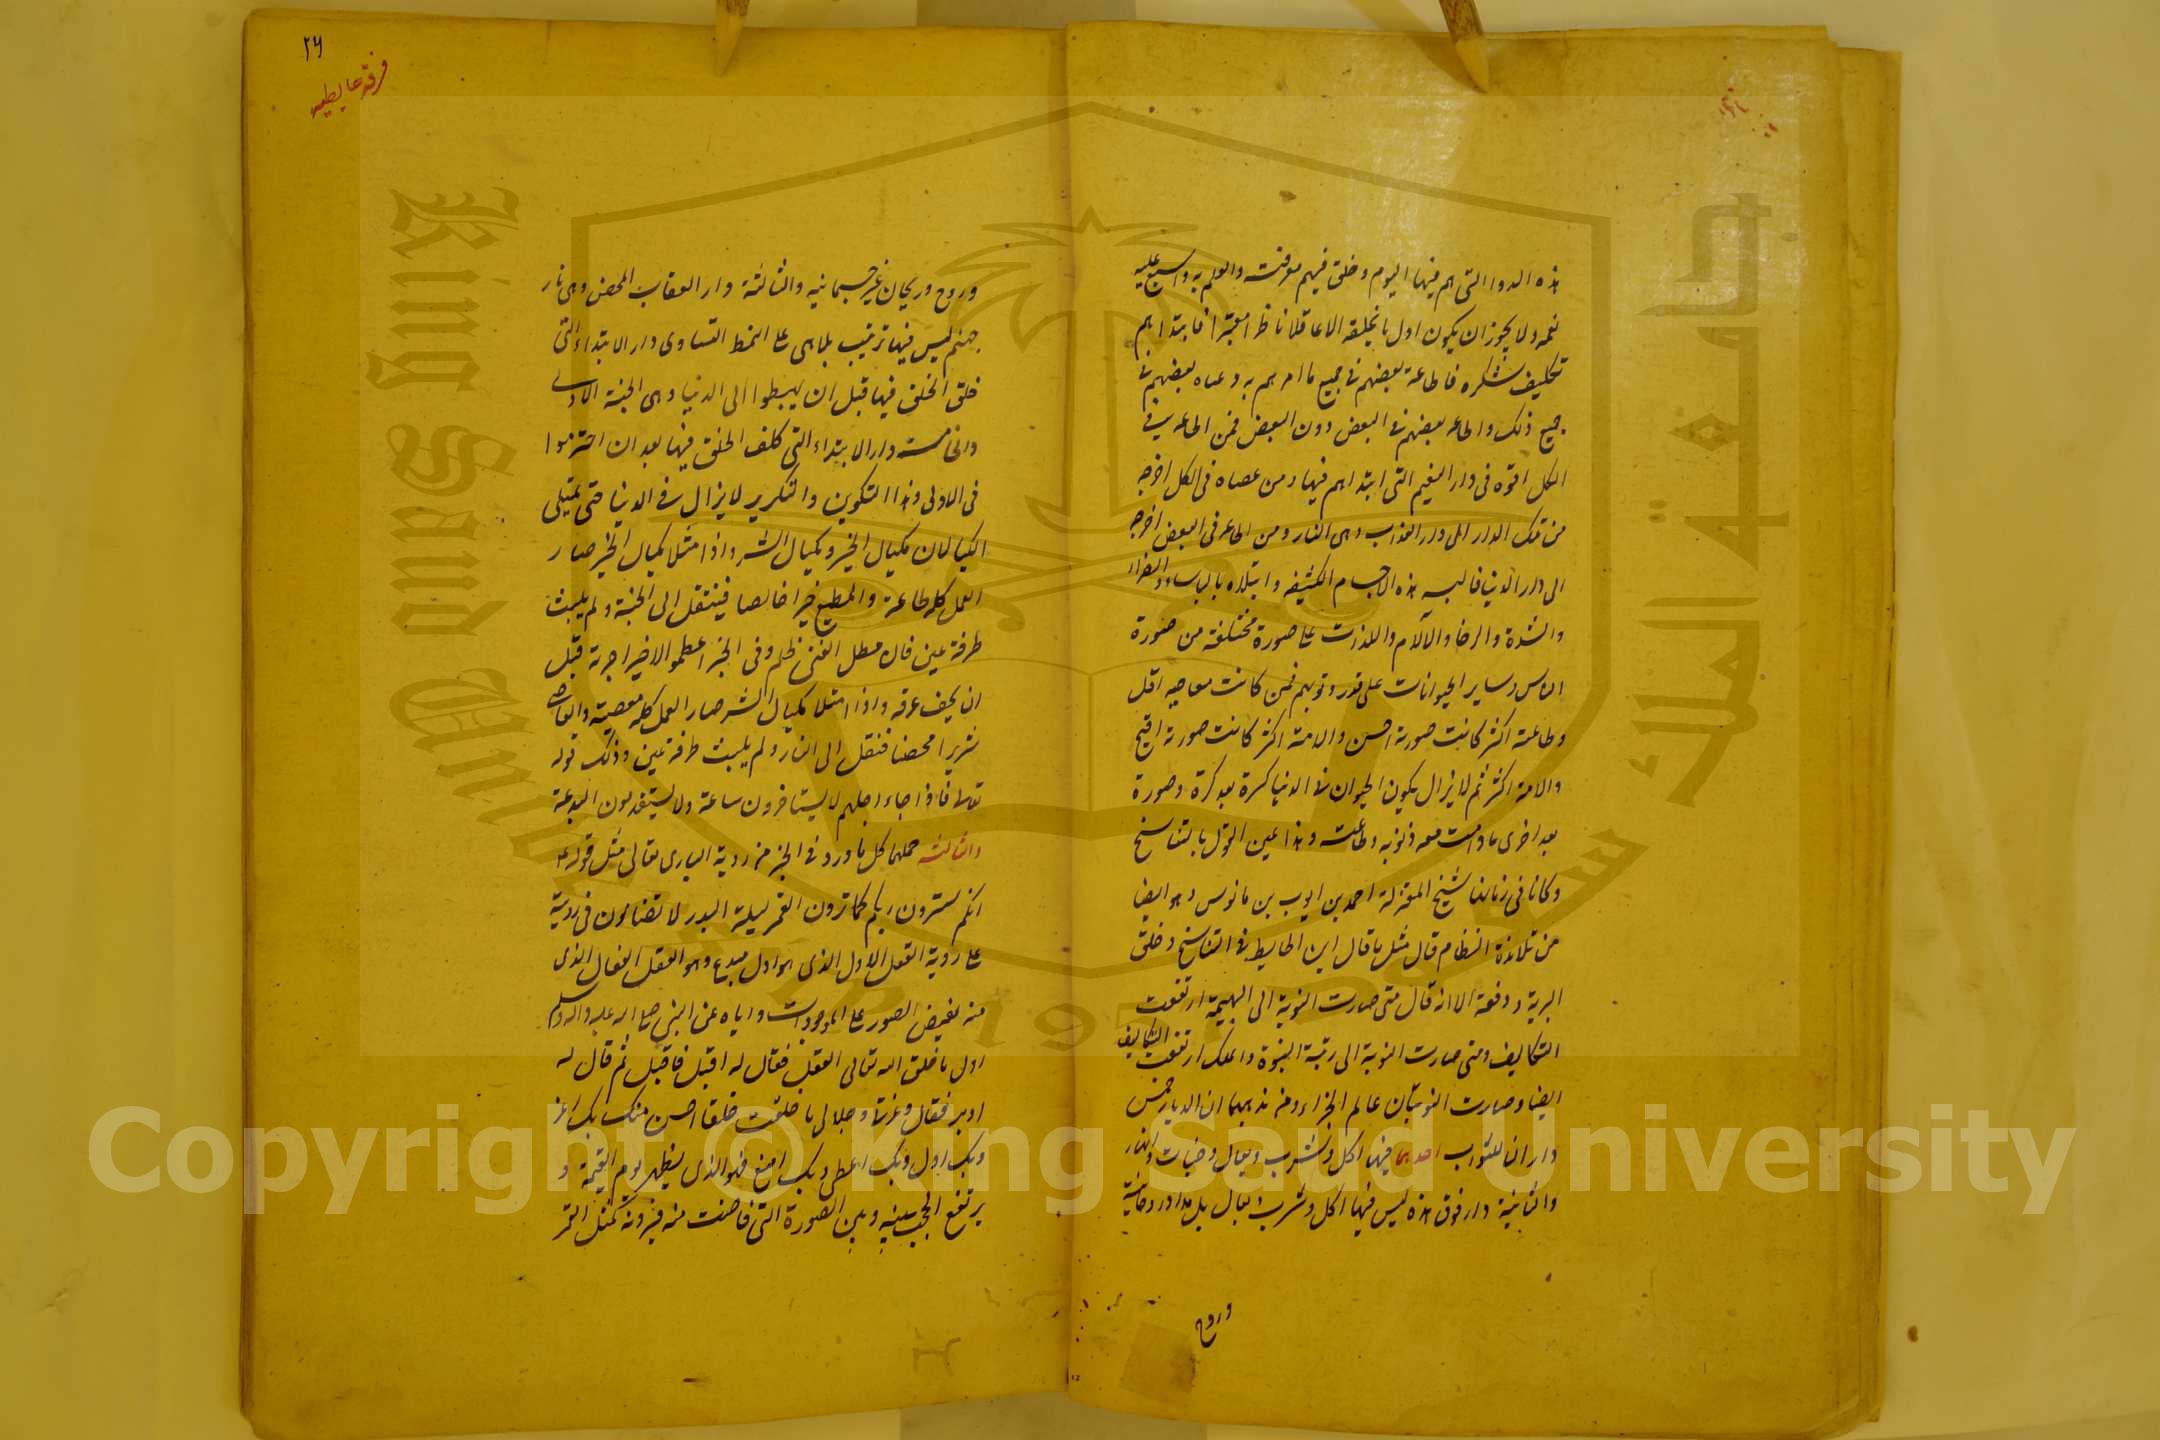 هذه الدوا التى هم فيها اليوم وخلق فيهم معرفته والعلم به واسبغ عليه
نعمه ولا يجوز ان يكون اول ما يخلقه الا عاقلا ناظرا معتبرا فابتداهم
تكليف شكره فاطاعه بعضهم فى جميع ما امرهم به وعصاه بعضهم فى
جميع ذلك واطاعه بعضهم فى البعض دون البعض فمن اطاعه فى
الكل اقره فى دار النعيم التى ابتداهم فيها ومن عصاه فى الكل اخرجه
من تلك الدار الى دار العذاب وهى النار ومن اطاعه فى البعض اخرجه
الى دار الدنيا فالبسه هذه الاجسام الكثيفه وابتلاه بالباساء والضراء
والشدة والرخا والآلام واللذات على صورة مختلفة من صورة
الناس وساير الحيوانات على قدر ذنوبهم فمن كانت معاصيه اقل
وطاعته اكثر كانت صورته احسن والامه اكثر كانت صورته اقبح
والامه اكثر ثم لا يزال يكون الحيوان فى الدنيا كرة بعد كرة وصورة
بعد اخرى ما دامت معه ذنوبه وطاعته وهذا عين القول بالتناسخ
وكان فى زمانهما شيخ المعتزلة احمد بن ايوب بن مانوس وهو ايضا
من تلامذة النظام قال مثل ما قال ابن الحايط فى التناسخ وخلق
البرية دفعة الا انه قال متى صارت النوبة الى البهيمة ارتفعت
التكاليف ومتى صارت النوبة الى رتبة النبوة والملك ارتفعت التكاليف
ايضا وصارت النوبتان عالم الجزاء ومن مذهبهما ان الديار خمس
داران للثواب احديهما فيها اكل وشرب وبعال وجنات وانهار
والثانية دار فوق هذه ليس فيها اكل وشرب وبعال بل ملاذ روحانية
وروح
٢٦
فرقة حايطيه
وروح وريحان غير جسمانيه والثالثة دار العقاب المحض وهى نار
جهنم ليس فيها ترتيب بل هى على النمط التساوى دار الابتداء التى
خلق الخلق فيها قبل ان يهبطوا الى الدنيا وهى الجنة الاولى
والخامسة دار الابتداء التى كلف الخلق فيها بعد ان اجترموا
فى الاولى وهذا التكوين والتكرير لا يزال فى الدنيا حتى يمتلى
المكيالان مكيال الخير ومكيال الشر واذا امتلا مكيال الخير صار
العمل كله طاعة والمطيع خيرا خالصا فينتقل الى الجنة ولم يلبث
طرفة عين فان مطل الغنى ظلم وفى الخبر اعطوا الاجير اجرته قبل
ان يجف عرقه واذا امتلا مكيال الشر صار العمل كله معصية والعاصى
شريرا محضا فنقل الى النار ولم يلبث طرفة عين وذلك قوله
تعالى فاذا جاء اجلهم لا يستاخرون ساعة ولا يستقدمون البدعة
والثالثه حملهما كل ما ورد فى الخبر من روية البارى تعالى مثل قوله ع
انكم سترون ربكم كما ترون القمر ليلة البدر لا تضامون فى رويته
على روية العقل الاول الذى هو اول مبدع وهو العقل الفعال الذى
منه يفيض الصور على الموجودات واياه عنى النبى صلى الله عليه واله وسلم
اول ما خلق الله تعالى العقل فقال له اقبل فاقبل ثم قال له
ادبر فقال وعزتى وجلالى ما خلقت خلقا احسن منك بك اعز
وبك اذل وبك اعطى وبك امنع فهو الذى يظهر يوم القيمة و
يرتفع الحجب بينه وبين الصورة التى فاضت منه فيرونه كمثل القمر
Copyright © King Saud University